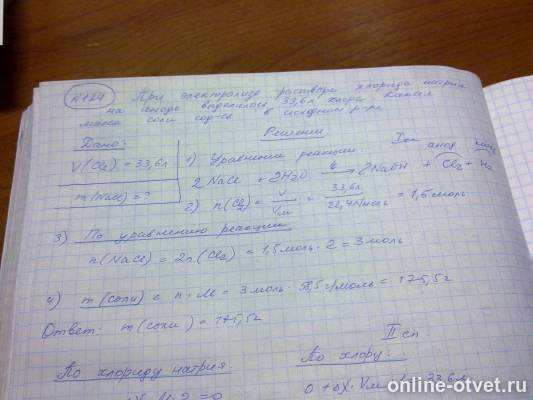 №124 При электролизе раствора хлорида натрия
на аноде выделилось 33,6 л хлора. Какая
масса соли сод-ся в исходном р-ре
Дано:
V(Cl₂) = 33,6л
m(NaCl) = ?
Решение
1) Уравнение реакции
Ток анод
2NaCl + 2H₂O → 2NaOH + Cl₂ + H₂
2) n(Cl₂) = V/Vм = 33,6л / 22,4л/моль = 1,5 моль
3) По уравнению реакции
n(NaCl) = 2n(Cl₂) = 1,5 моль · 2 = 3 моль
4) m(соли) = n · M = 3 моль · 58,5 г/моль = 175,5г
Ответ: m(соли) = 175,5г
II сп
По хлориду натрия:
По хлору:
0 + ΔX · Vм · 1 = 33,6л
online-otvet.ru